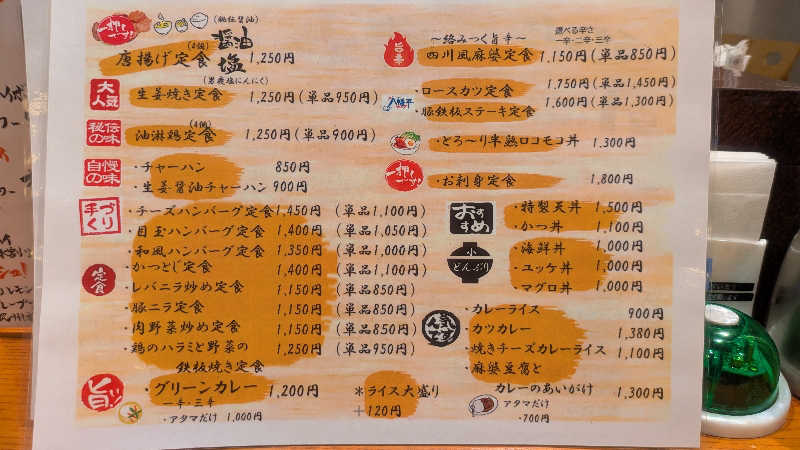 一押しです!
(秘伝醤油)
唐揚げ定食(4個) 醤油 塩 1,250円
(岩塩塩にんにく)
大人気
生姜焼き定食 1,250円(単品950円)
秘伝の味
油淋鶏定食(4個) 1,250円(単品900円)
自慢の味
・チャーハン 850円
・生姜醤油チャーハン 900円
手づくり
・チーズハンバーグ定食 1,450円(単品1,100円)
・目玉ハンバーグ定食 1,400円(単品1,050円)
・和風ハンバーグ定食 1,350円(単品1,000円)
定食
・かつとじ定食 1,400円(単品1,100円)
・レバニラ炒め定食 1,150円(単品850円)
・豚ニラ定食 1,150円(単品850円)
・肉野菜炒め定食 1,150円(単品850円)
・鶏のハラミと野菜の 1,250円(単品950円)
鉄板焼き定食
旨い!
・グリーンカレー 1,200円
一辛・三辛
・アタマだけ 1,000円
*ライス大盛り
+120円
旨辛
〜絡みつく旨辛〜
選べる辛さ
一辛・二辛・三辛
四川風麻婆定食 1,150円(単品850円)
八幡平
・ロースカツ定食 1,750円(単品1,450円)
・豚鉄板ステーキ定食 1,600円(単品1,300円)
・とろ〜り半熟ロコモコ丼 1,300円
一押しです!
・お刺身定食 1,800円
おすすめ
・特製天丼 1,500円
・かつ丼 1,100円
小どんぶり
・海鮮丼 1,000円
・ユッケ丼 1,000円
・マグロ丼 1,000円
・カレーライス 900円
・カツカレー 1,380円
・焼きチーズカレーライス 1,100円
・麻婆豆腐と
カレーのあいがけ 1,300円
アタマだけ
・700円